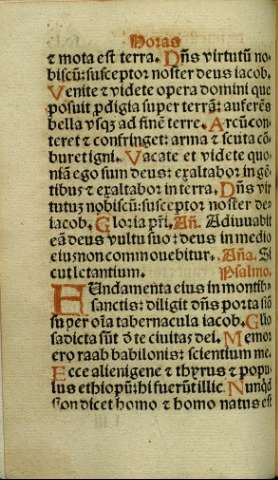 Horas
⁊ mota est terra. Dñs virtutũ no-
biscũ: susceptor noster deus iacob.
Venite ⁊ videte opera domini que
posuit ꝓdigia super terrã: auferẽs
bella vsqꝫ ad finẽ terre. Arcũ con-
teret ⁊ confringet: arma ⁊ scuta cõ-
buret igni. Vacate et videte quo-
niã ego sum deus: exaltabor in gẽ-
tibus ⁊ exaltabor in terra. Dñs vir
tutuꝫ nobiscũ: susceptor noster de-
iacob. Gloria pr̃i. Añ. Adiuuabit
eã deus vultu suo: deus in medio
eius non commouebitur. Aña. Si
cut letantium. Psalmo.
FUndamenta eius in montibꝰ
sanctis: diligit dñs porta siõ
super oĩa tabernacula iacob. Glo
sa dicta sũt d̃ te ciuitas dei. Memor
ero raab babilonis: scientium me.
Ecce alienigene ⁊ thyrus ⁊ popu
lus ethiopũ: hi fuerũt illic. Nunqd̃
syon dicet homo ⁊ homo natus est